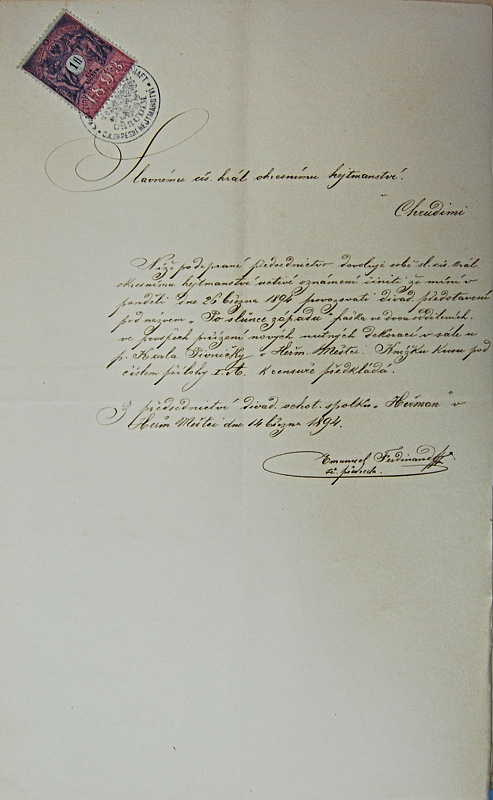 10
1893
CHRUDIM
C.K. OKRESNÍ HEJTMANSTVÍ
Slavnému cís. král. okresnímu hejtmanství.
Chrudimi
Níže podepsané předsednictvo dovoluje sobě sl. cís. král.
okresnímu hejtmanství uctivé oznámení činiti, že míní v
pondělí dne 26 března 1894 provozovati divad. představení
pod názvem „Po slunce západu" fraška ve dvou odděleních.
ve prospěch pořízení nových nutných dekorací v sále u
p. Karla Pivničky v Heřm. Městci. Knížku kusu pod
čístem přílohy 1. A. k censuře předkládá.
Z předsednictví divad. ochot. spolku „Heřman" v
Heřm Městci dne 14 března 1894.
Emanuel Ferdinand
předseda.